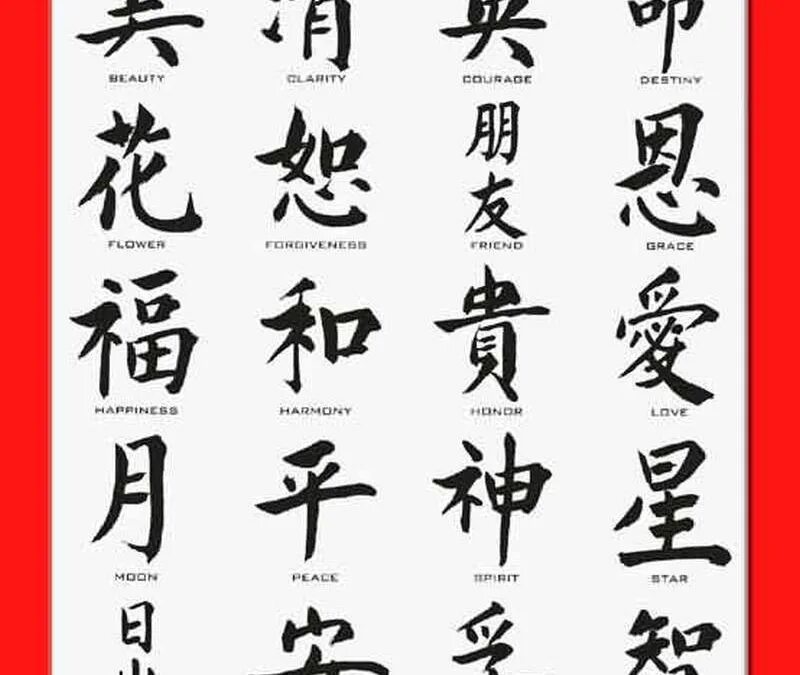 美 清 英 命
BEAUTY CLARITY COURAGE DESTINY
花 恕 朋友 恩
FLOWER FORGIVENESS FRIEND GRACE
福 和 貴 愛
HAPPINESS HARMONY HONOR LOVE
月 平 神 星
MOON PEACE SPIRIT STAR
日 安 智